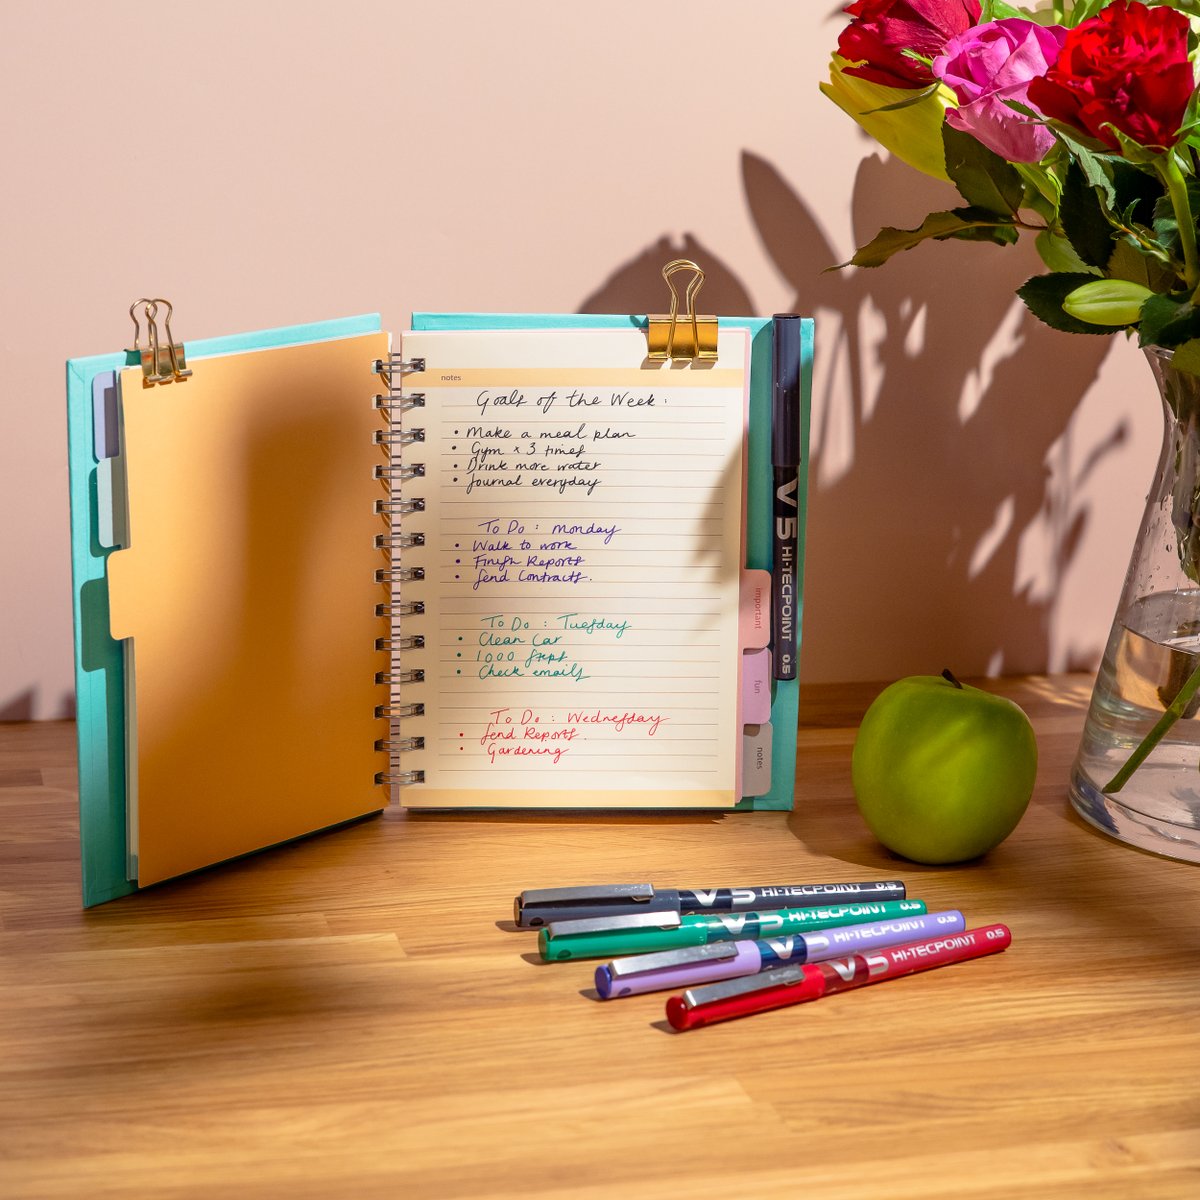 notes
Goals of the Week:
• Make a meal plan
• Gym x 3 times
• Drink more water
• Journal everyday
To Do : Monday
• Walk to work
• Finish Reports
• Send Contracts.
To Do : Tuesday
• Clean Car
• 1000 steps
• Check emails
To Do : Wednesday
• Send Reports.
• Gardening
important
fun
notes
V5 HI-TECPOINT 0.5
V5 HI-TECPOINT 0.5
V5 HI-TECPOINT 0.5
V5 HI-TECPOINT 0.5
V5 HI-TECPOINT 0.5